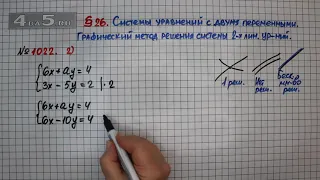 4 б 5. ru
§26. Системы уравнений с двумя переменными.
Графический метод решения системы 2-х лин. ур-ний.
№1022. 2)
6x+ay=4
3x-5y=2 |·2
6x+ay=4
6x-10y=4
1 реш.